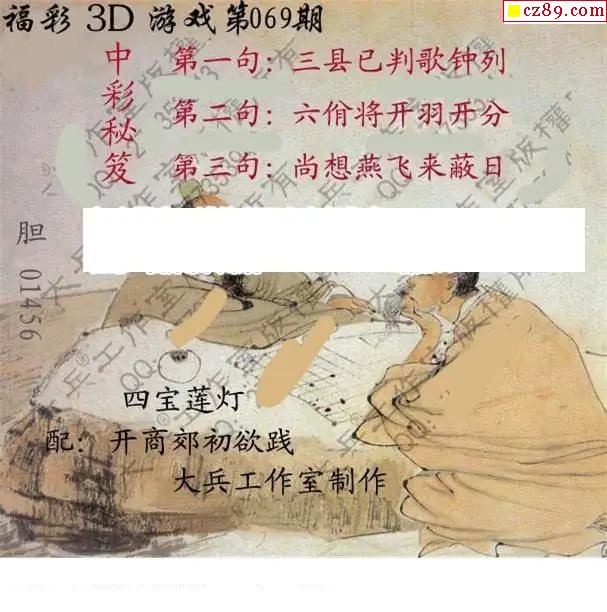 福彩 3D 游戏第069期
cz89.com
中彩秘笈
第一句：三县已判歌钟列
第二句：六佾将开羽开分
第三句：尚想燕飞来蔽日
胆 01456
四宝莲灯
配：开商郊初欲践
大兵工作室制作